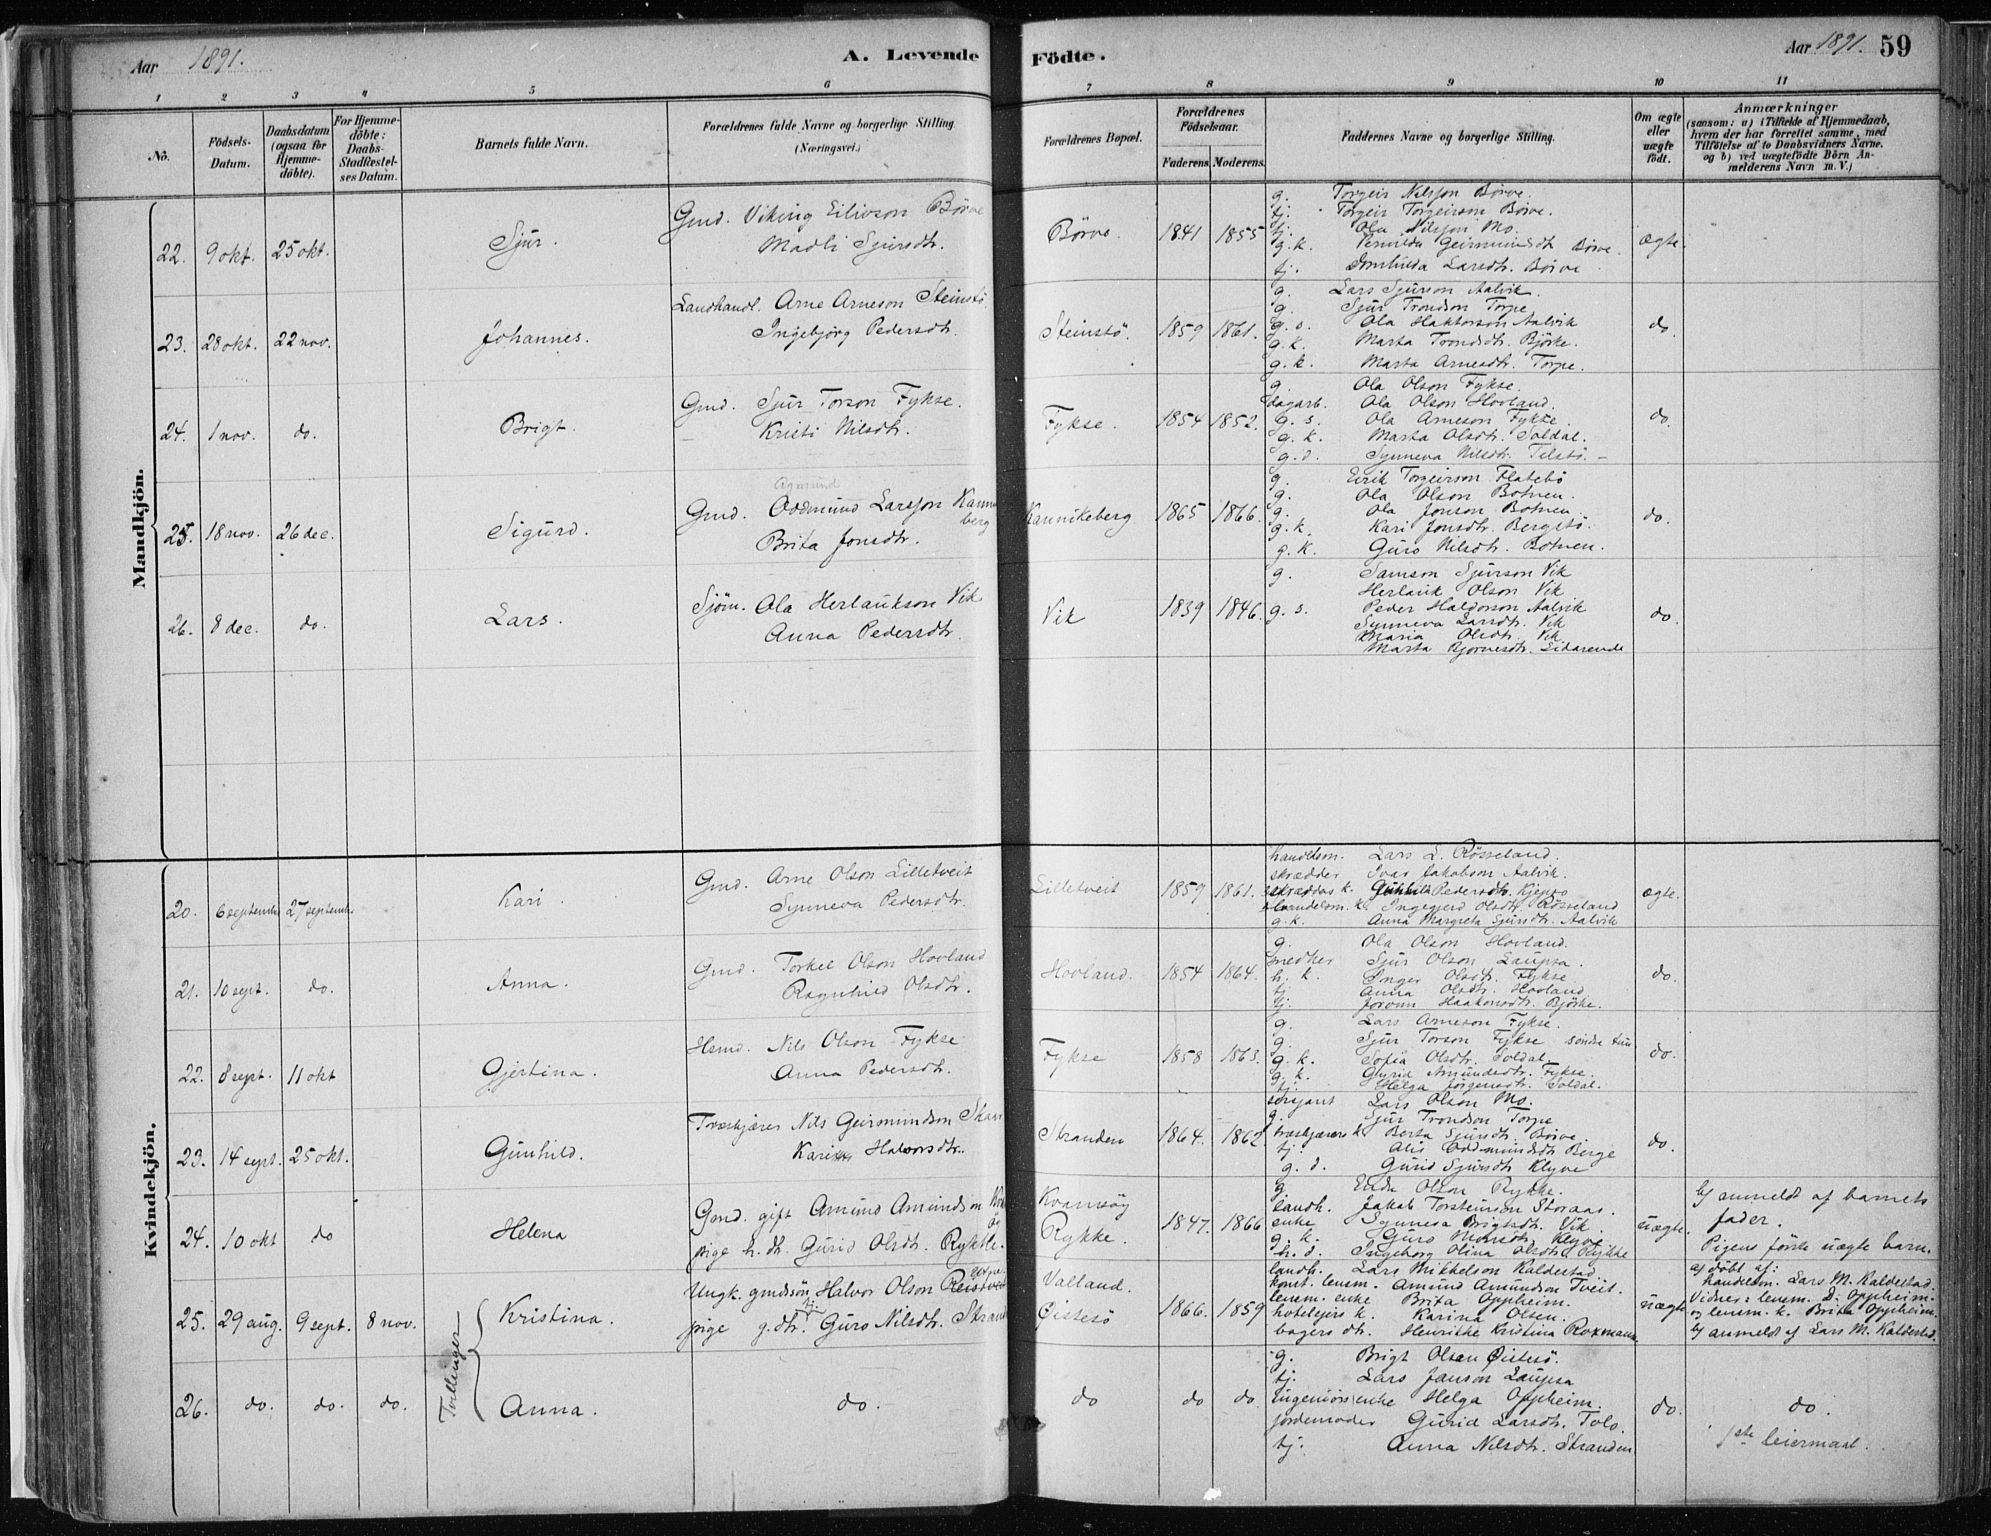 Aar 1891.
A. Levende Födte.
Aar 1891. 59
1 2 3 4 5 6 7 8 9 10 11
No.
Födsels-Datum.
Daabsdatum (ogsaa for Hjemme-döbte).
For Hjemme-döbte: Daabs-Stadfæstel-ses Datum.
Barnets fulde Navn.
Forældrenes fulde Navne og borgerlige Stilling. (Næringsvei.)
Forældrenes Bopæl.
Forældrenes Födselsaar.
Faderens. Moderens.
Faddernes Navne og borgerlige Stilling.
Om ægte eller uægte födt.
Anmærkninger
(saasom: a) i Tilfælde af Hjemmedaab, hvem der har forrettet samme, med Tilföielse af to Daabsvidners Navne. og b) ved uægtefödte Börn An-melderens Navn m. V.)
Mandkjön.
22. 9 okt. 25 okt. Sjur. Gmd. Viking Eilivson Börve
Madli Sjursdtr. Börve. 1841 1855 ægte.
g. Torgeir Nilsson Börve.
tj. Torgeir Torgeirson Börve.
tj. Ola Nilsson Mo.
g.k. Geirmundsdtr Börve.
tj. Larsdtr. Börve
23. 28 okt. 22 nov. Johannes. Landhandl. Arne Arneson Steinstö
Ingebjörg Pedersdtr. Steinstö. 1859 1861. do
g. Lars Sjurson Aalvik.
g. Sjur Trondson Torpe
g.s. Ola Haktorson Aalvik
g.k. Marta Trondsdtr. Björke.
g.k. Marta Arnesdtr. Torpe.
24. 1 nov. do. Brigt. Gmd. Sjur Torson Fykse.
Kristi Nilsdtr. Fykse. 1854 1852. do.
g. Ola Olson Fykse.
dagarb. Ola Olson Hovland.
g.s. Ola Arneson Fykse
g.k. Marta Olsdtr. Soldal.
g.d. Synneva Nilsdtr. Telstö.
25. 18 nov. 26 dec. Sigurd. Gmd. Oddmund Larsson Kannikeberg
Brita Jonsdtr. Kannikeberg 1865 1866. do.
g. Eirik Torgeirson Flatebö
g. Ola Olson Botnen.
g. Ola Jonson Botnen.
g.k. Kari Jonsdtr. Bergstö.
g.k. Guro Nilsdtr. Botnen.
26. 8 dec. do. Lars. Sjöm. Ola Herlaukson Vik
Anna Pedersdtr. Vik 1839 1846. do
g. Samson Sjurson Vik
Herlauk Olson Vik
g.s. Peder Haldorson Aalvik
Synneva Larsdtr. Vik
Maria Olsdtr. Vik
Marta Bjornesdtr. Lidarende
Kvindekjön.
20. 6 septembr 27 septembr Kari. Gmd. Arne Olson Lilletveit
Synneva Pedersdtr. Lilletveit 1859 1861. ægte.
handelsm. Lars L. Rösseland.
skrædder Ivar Jakobson Aalvik.
skrædders k. Gunhild Pedersdtr. Kjepso
handelsm. k. Ingegjerd Olsdtr. Rösseland
g.k. Anna Margreta Sjursdtr. Aalvik
21. 10 sept. do. Anna. Gmd. Torkel Olson Hovland
Ragnhild Olsdtr. Hovland. 1854 1864. do.
g. Ola Olson Hovland.
smedker Sjur Olson Laupsa.
h.k. Inger Olsdtr. Fykse
tj. Anna Olsdtr. Hovland
tj. Jorunn Haakonsdtr. Björke.
22. 8 sept. 11 okt Gjertina. Hsmd. Nils Olson Fykse
Anna Pedersdtr. Fykse 1858 1863. do.
g. Lars Arneson Fykse.
g. Sjur Torson Fykse söndre tun
g.k. Sofia Olsdtr. Soldal
g.k. Gurid Amundsdtr. Fykse.
tj. Helga Jörgensdtr. Soldal.
23. 14 sept. 25 okt. Gunhild. Træskjærer Nils Geirmundson Stran
Kari Halvorsdtr. Stranden 1864. 1862 do.
sersjant Lars Olson Mo.
g. Sjur Trondson Torpe
træskjærers k. Berta Sjursdtr. Börve.
tj. Alis Oddmundsdtr Berge
g.d. Gurid Sjursdtr Klyve
24. 10 okt do Helena Gmd. gift Amund Amundson
pige h. dtr. Gurid Olsdtr. Rykke. Kvamsöy
Rykke. 1847. 1866 uægte.
g. Olson Rykke.
landh. Jakab Torsteinson Storaas.
enke Synneva Brigtsdtr. Vik.
g.k. Guro Klyve
h.d. Ingeborg Olina Olsdtr. Rykke
b) anmeldt af barnets
fader.
Pigens förste uægte barn.
Tvillinger
25. 29 aug. 9 sept. 8 nov. Kristina. Ungk. gmdssön Halvor Olson
pige g.dtr. Guro Nilsdtr. Strand Valland.
Öistesö 1866. 1859 uægte
landh. Lars Mikkelson Kaldestad
konst. lensm. Amund Amundson Tveit.
lensm. enke Brita Oppheim.
hoteleiers k. Karina Olsen.
bagers dtr. Henrikke Kristina Roxmann
a) döbt af:
handelsm. Lars M. Kaldestad.
Vidner: lensm. D. Oppheim.
og lensm. k. Brita Oppheim.
b) anmeldt af Lars M. Kaldestad.
26. do. do. do. Anna. do. do do do do.
g. Brigt Olsen Öistesö.
tj. Lars Janson Laupsa
ingeniörs enke Helga Oppheim.
jordemoder Gurid Larsdtr. Tolo.
tj. Anna Nilsdtr. Stranden
do.
1ste leiermaal.